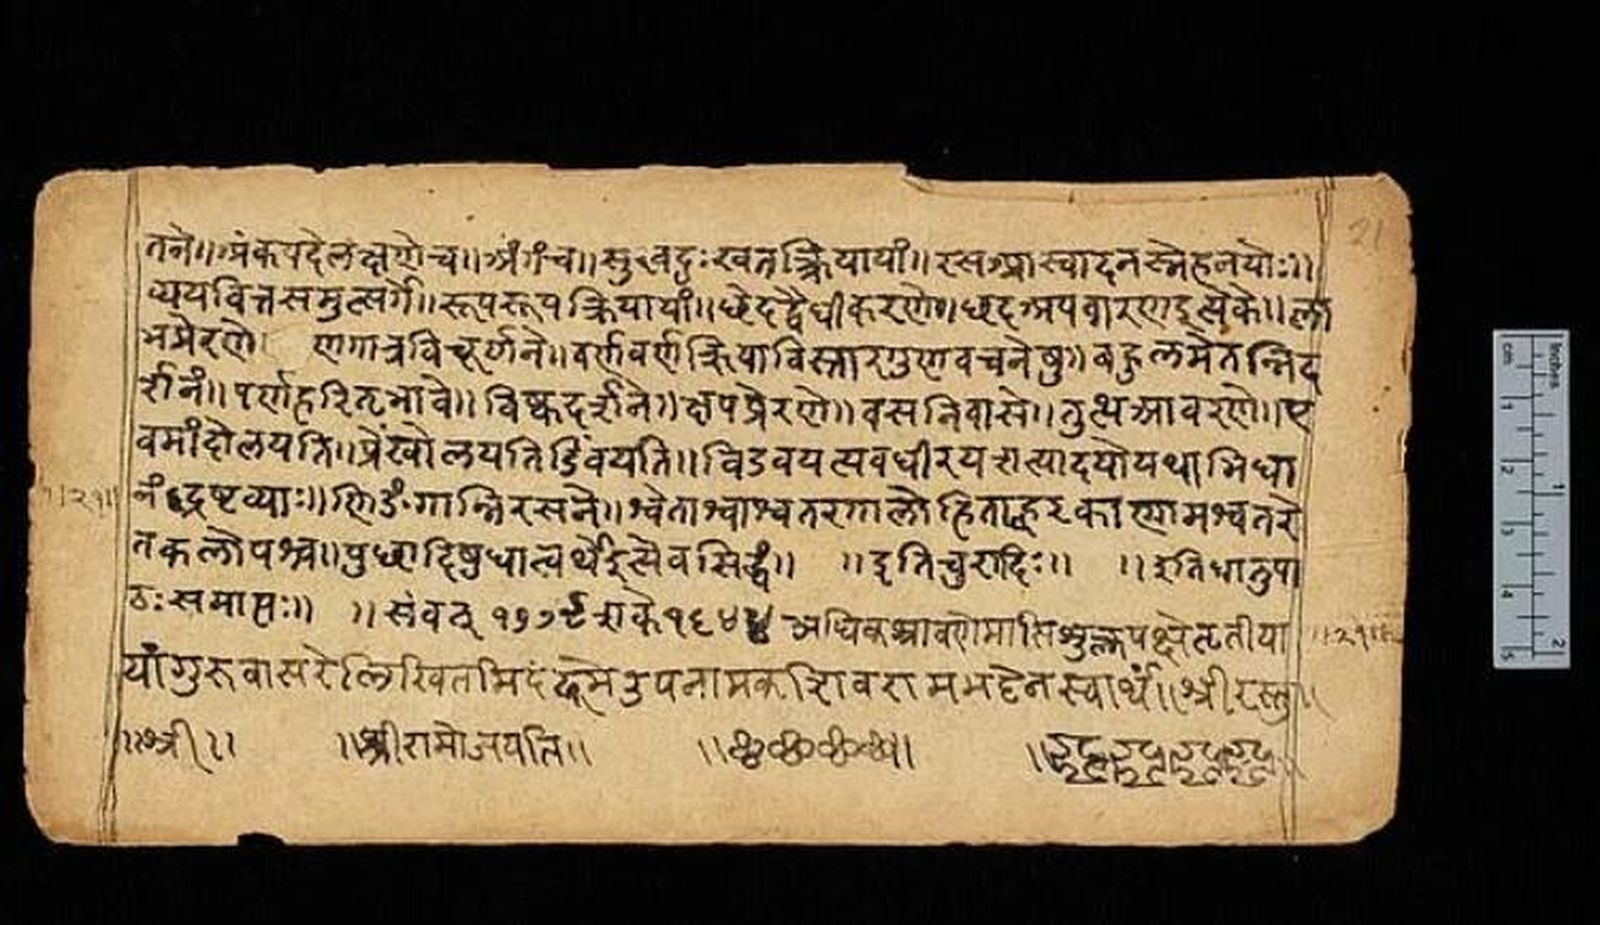 तने॥ अंकपदेलक्षणेच॥ अंगंच॥ सुखदुःखतत्क्रियायां॥ रसआस्वादनस्नेहनयोः॥
व्ययवित्तसमुत्सर्गे॥ रूपरूपक्रियायां॥ छेदद्वैधीकरणे॥ छदअपवारणइत्येके॥ ला
भप्रेरणे। णगात्रविचूर्णने॥ वर्णवर्णक्रियाविस्तारगुणवचनेषु॥ बहुलमेतन्निद
र्शनं॥ पर्णहरितभावे॥ विष्कदर्शने॥ क्षपप्रेरणे॥ वसनिवासे॥ तुत्थआवरणे॥ ए
वमांदोलयति॥ प्रेंखोलयति डिंबयति॥ विडवयत्यवधीरयत्यादयोयथाभिधा
नंद्रष्टव्याः॥ णिङंगान्निरसने॥ श्वेताश्वाश्वतरगालोहिताह्वरकाणामश्वतरे
तकलोपश्च॥ पुछादिषुधात्वर्थेइत्येवसिद्धं॥ ॥इतिचुरादिः॥ ॥इतिधातुपा
ठः समाप्तः॥ ॥संवत् १७७९ शके १६४४ अधिकश्रावणेमासिशुक्लपक्षेतृतीया
यांगुरुवासरेलिखितमिदं उपनामकशिवरामभट्टेनस्वार्थं॥ श्रीरस्तु॥
॥श्री॥ ॥श्रीरामोजयति॥
21
॥२१॥
॥२१॥